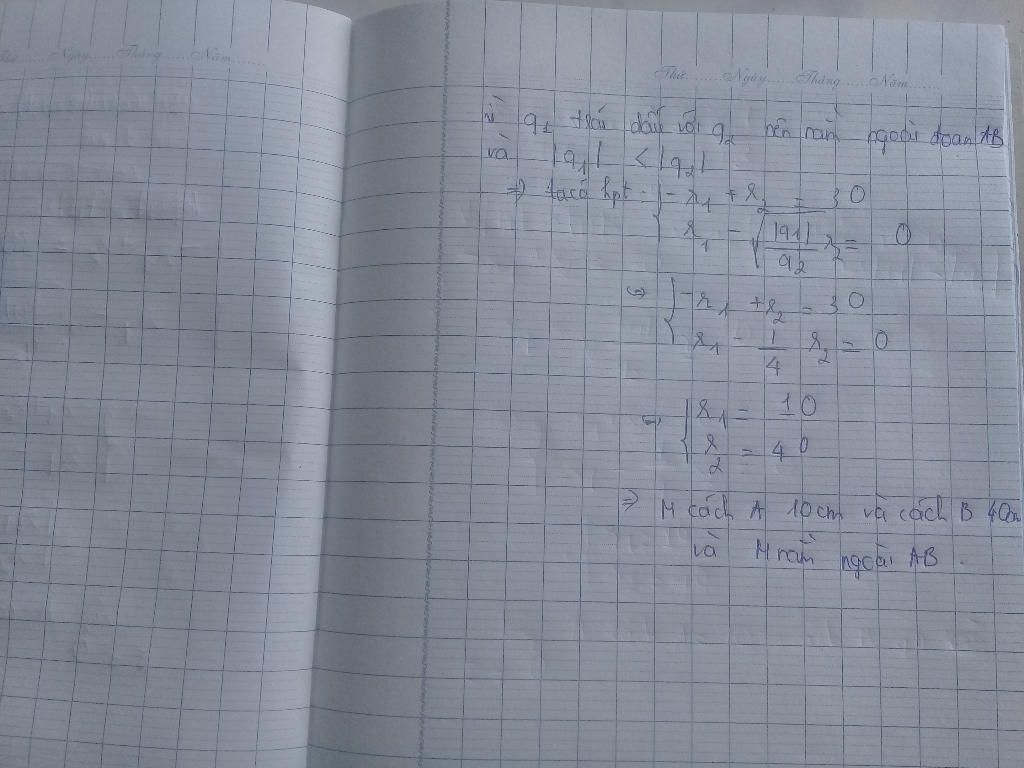 Ngày Tháng Năm
Thứ Ngày Tháng Năm
vì q₁ trái dấu với q₂ nên nằm ngoài đoạn AB
và |q₁| < |q₂|
⇒ ta có hpt { -r₁ + r₂ = 30
r₁ - √(|q1|/q₂) r₂ = 0
⇔ { -r₁ + r₂ = 30
r₁ - 1/4 r₂ = 0
⇔ { r₁ = 10
r₂ = 40
⇒ M cách A 10cm và cách B 40c
và M nằm ngoài AB.